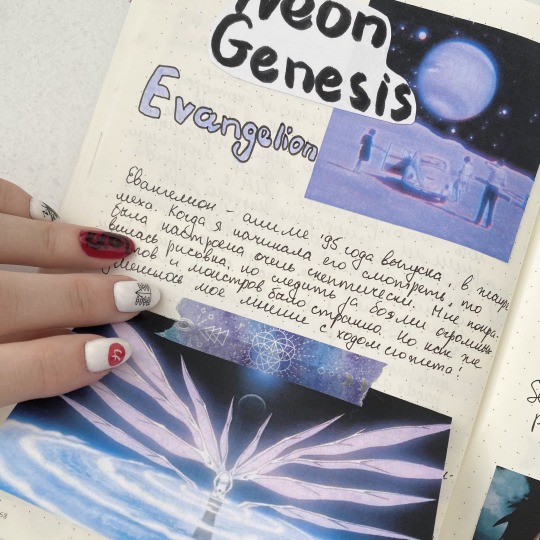 Neon
Genesis
Evangelion
Евангелион - аниме '95 года выпуска, в жанре
меха. Когда я начинала его смотреть, то
была настроена очень скептически. Мне понра-
вилась рисовка, но следить за боями огромных
и монстров было странно. Но как же
менялось моё мнение с ходом сюжета!